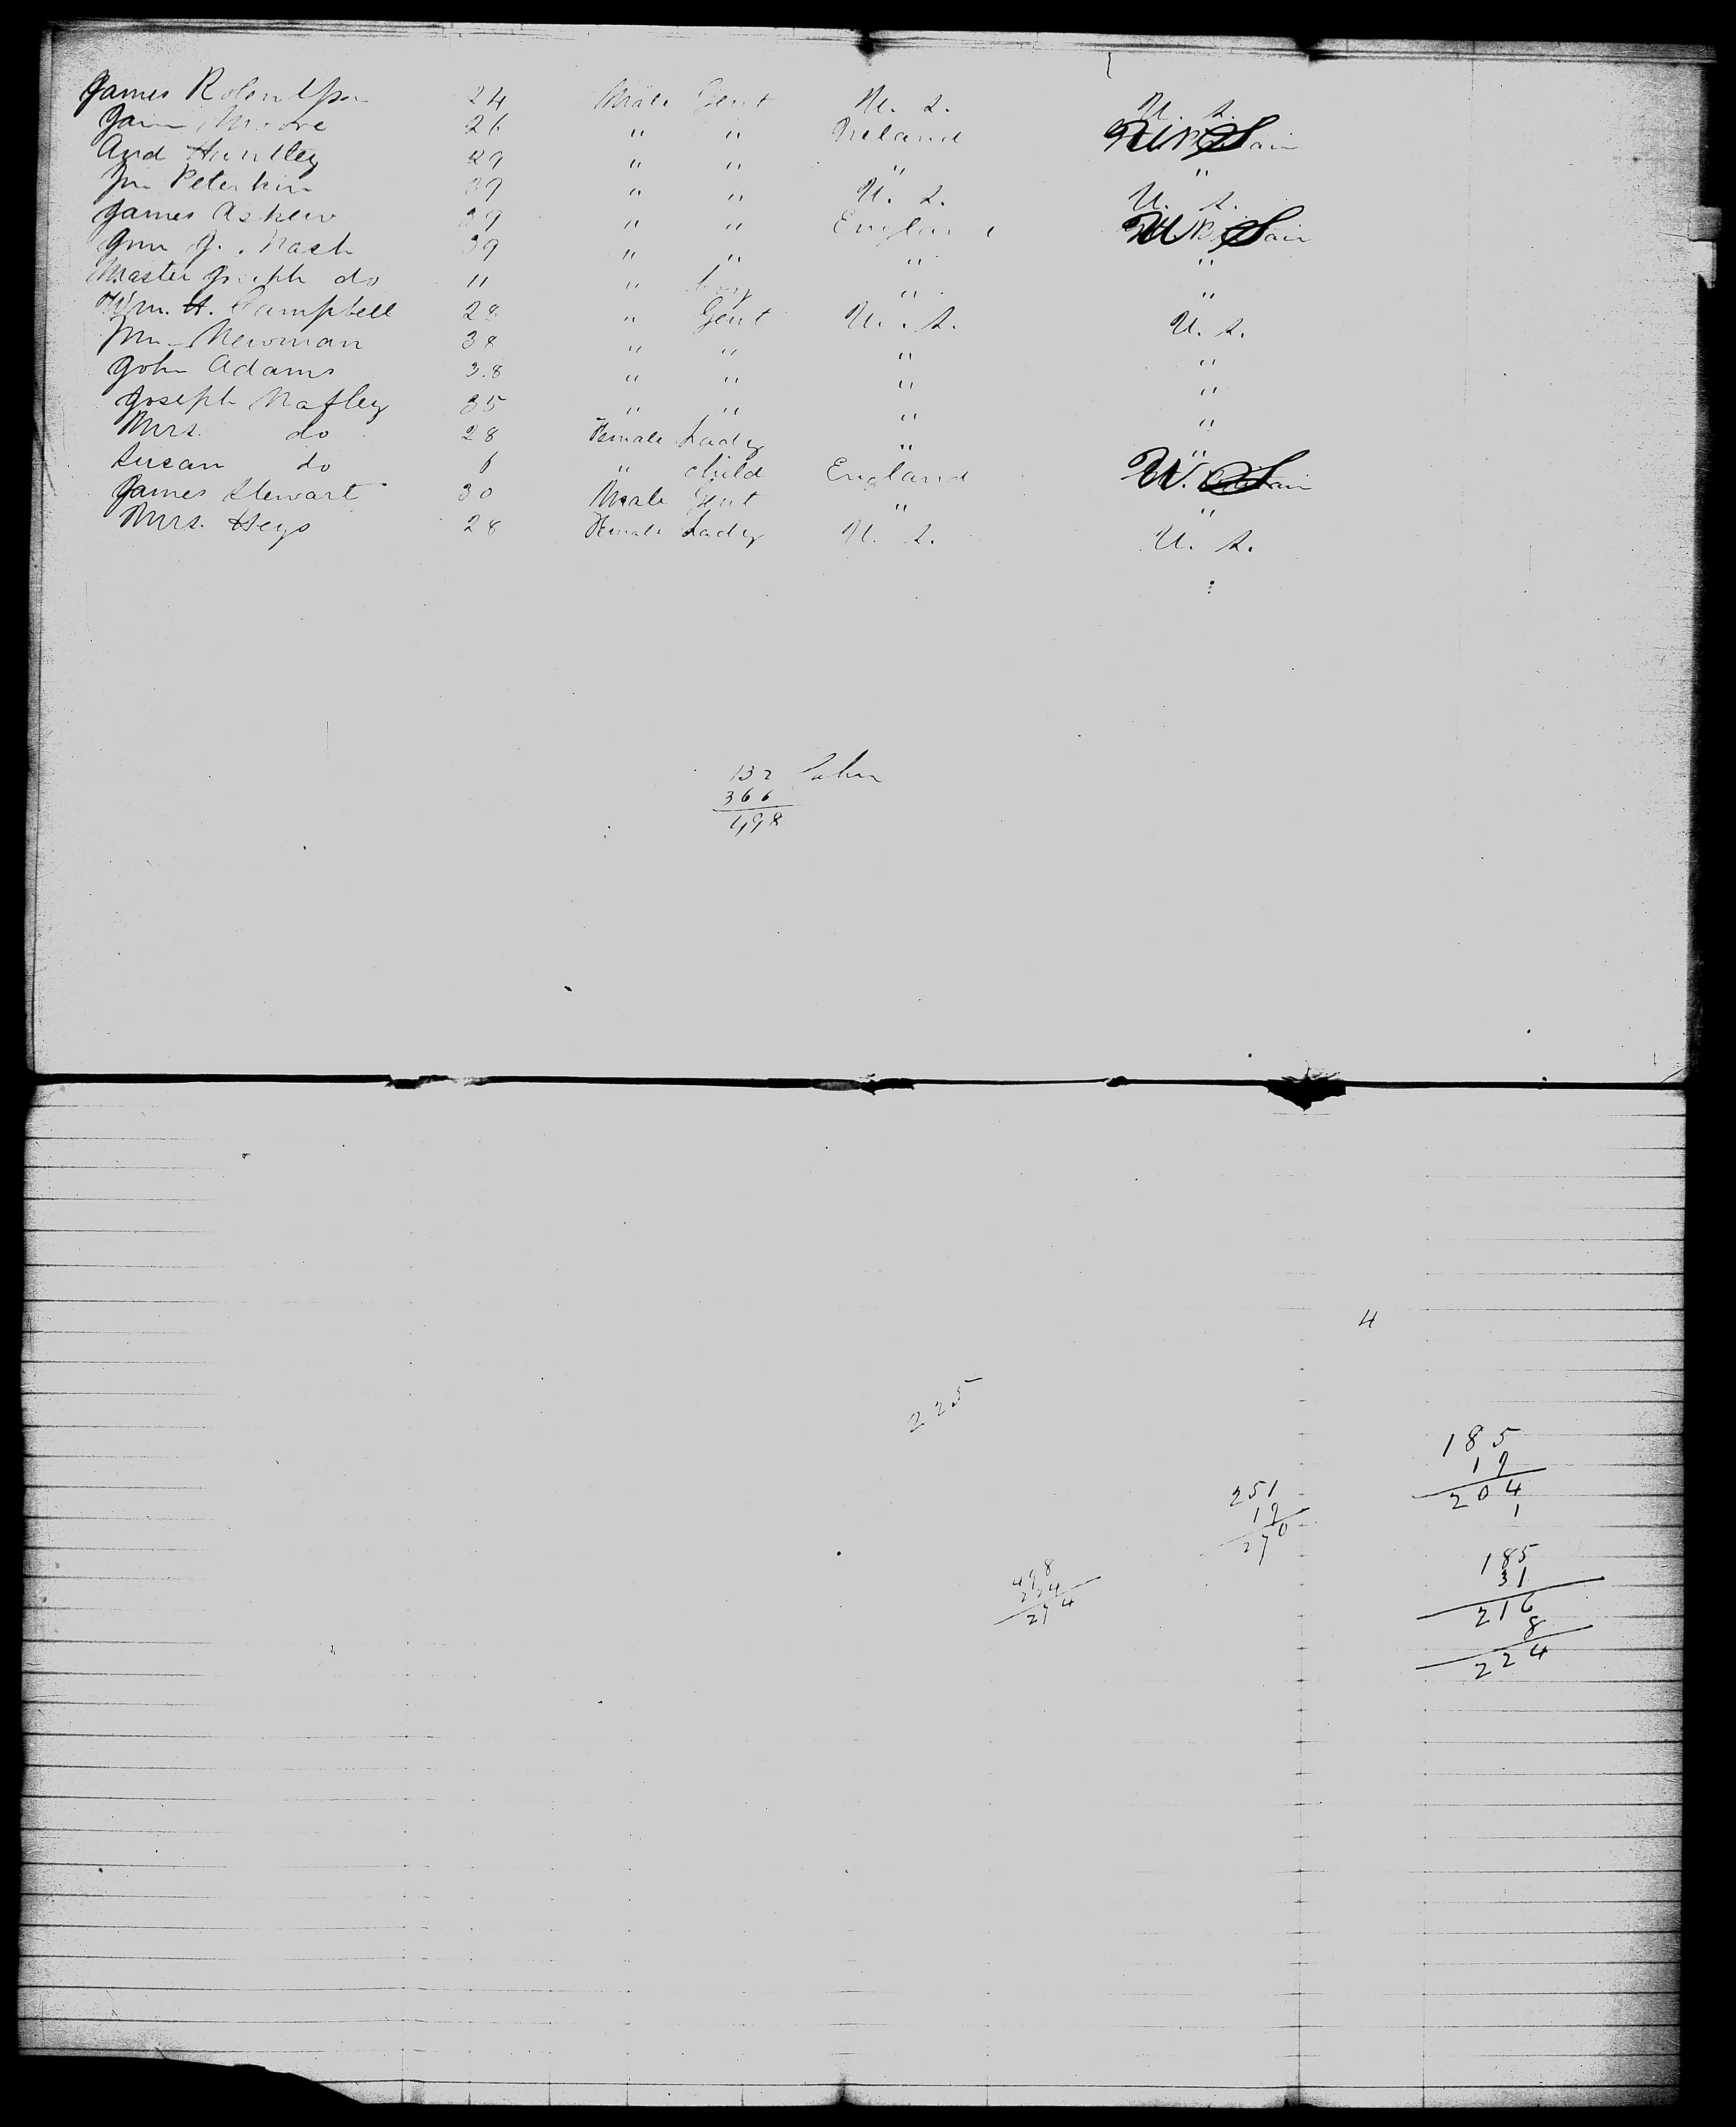 James 24 Male Gent U. S. U. S.
Moore 26 " " Ireland
And Huntley 29 " " " "
Peterkin 39 " " U. S. U. S.
James Askew 39 " " England
J. Nash 39 " " " "
Master Joseph do 11 " boy " "
Wm. H. Campbell 28 " Gent U. S. U. S.
Newman 38 " " " "
John Adams 38 " " " "
Joseph Natley 35 " " " "
Mrs. do 28 Female Lady " "
Susan do 6 " child England U. S
James Stewart 30 Male Gent " "
Mrs. Heys 28 Female Lady U. S. U. S.
132
366
498
4
225
185
19
204
1
251
19
270
185
31
216
8
224
498
224
274